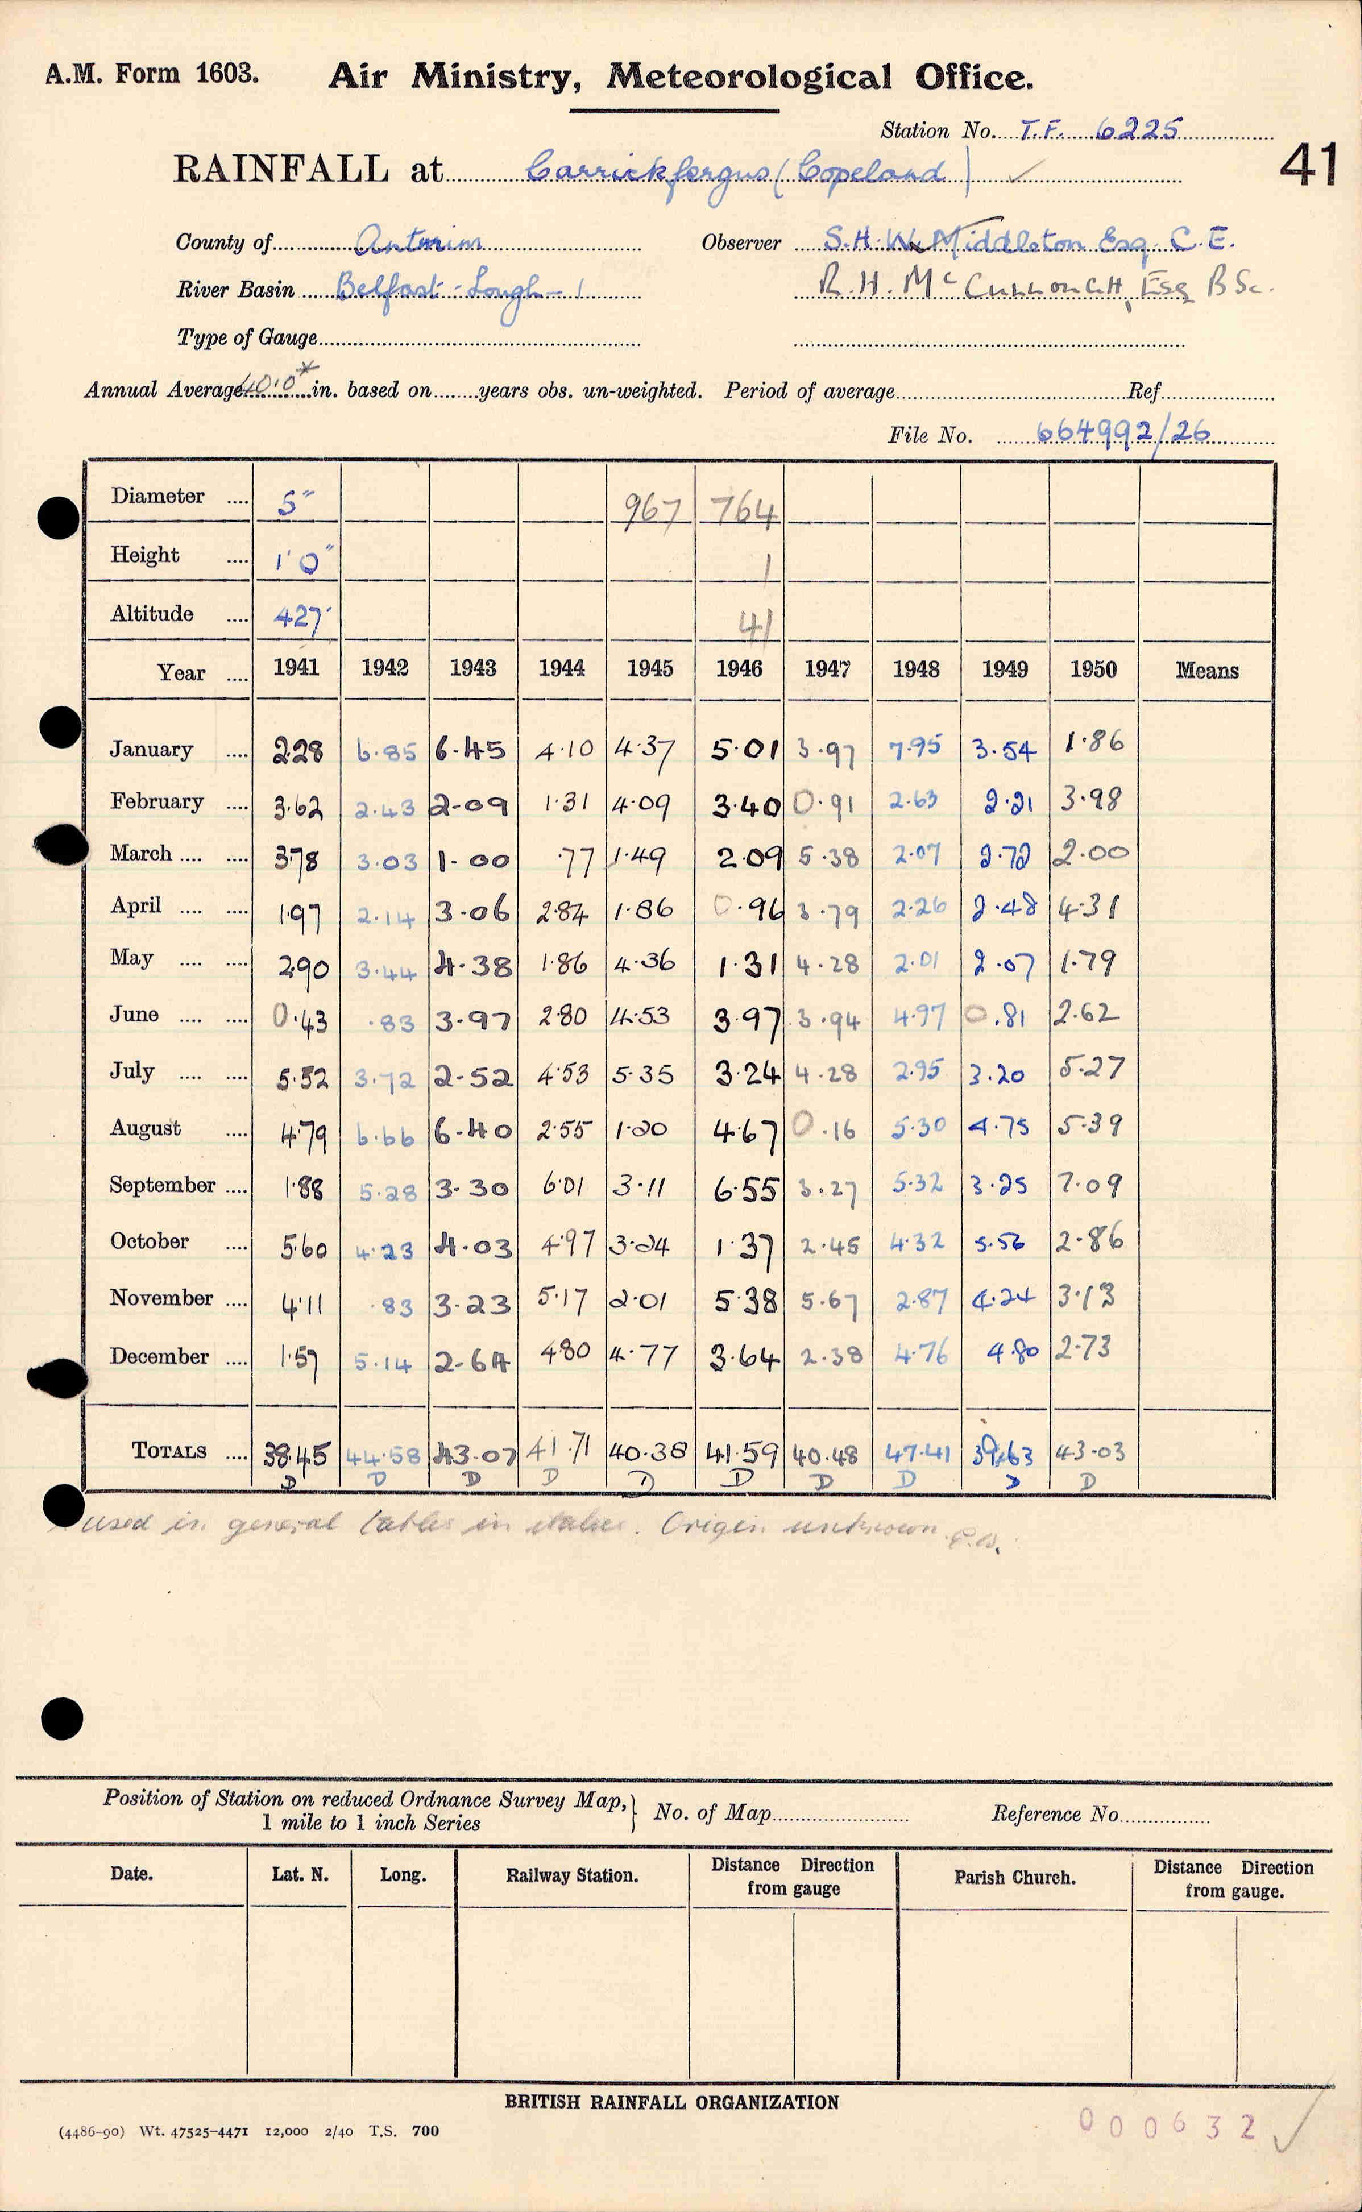 A.M. Form 1603. Air Ministry, Meteorological Office.
Station No. T.F. 6225
RAINFALL at Carrickfergus (Copeland) ✓ 41
County of Antrim Observer S.H.W. Middleton Esq. C.E.
River Basin Belfast-Lough-1 R.H. McCullough, Esq BSc.
Type of Gauge
Annual Average 40.0* in. based on years obs. un-weighted. Period of average Ref
File No. 664992/26
Diameter .... 5" 967 764
Height .... 1'0" 1
Altitude .... 427' 41
Year .... 1941 1942 1943 1944 1945 1946 1947 1948 1949 1950 Means
January .... 2.28 6.85 6.45 4.10 4.37 5.01 3.97 7.95 3.54 1.86
February .... 3.62 2.43 2.09 1.31 4.09 3.40 0.91 2.63 2.21 3.98
March .... .... 3.78 3.03 1.00 .77 1.49 2.09 5.38 2.07 2.72 2.00
April .... .... 1.97 2.14 3.06 2.84 1.86 0.96 3.79 2.26 2.48 4.31
May .... .... 2.90 3.44 4.38 1.86 4.36 1.31 4.28 2.01 2.07 1.79
June .... .... 0.43 .83 3.97 2.80 4.53 3.97 3.94 4.97 0.81 2.62
July .... .... 5.52 3.72 2.52 4.53 5.35 3.24 4.28 2.95 3.20 5.27
August .... 4.79 6.66 6.40 2.55 1.20 4.67 0.16 5.30 4.75 5.39
September .... 1.88 5.28 3.30 6.01 3.11 6.55 3.27 5.32 3.25 7.09
October .... 5.60 4.23 4.03 4.97 3.24 1.37 2.45 4.32 5.56 2.86
November .... 4.11 .83 3.23 5.17 2.01 5.38 5.67 2.87 4.24 3.13
December .... 1.57 5.14 2.64 4.80 4.77 3.64 2.38 4.76 4.80 2.73
TOTALS .... 38.45 44.58 43.07 41.71 40.38 41.59 40.48 47.41 39.63 43.03
D D D D D D D D D D
used in general tables in italics. Origin unknown
Position of Station on reduced Ordnance Survey Map,
1 mile to 1 inch Series } No. of Map Reference No.
Date. Lat. N. Long. Railway Station. Distance Direction from gauge Parish Church. Distance Direction from gauge.
BRITISH RAINFALL ORGANIZATION
(4486-90) Wt. 47525-4471 12,000 2/40 T.S. 700
000632 ✓